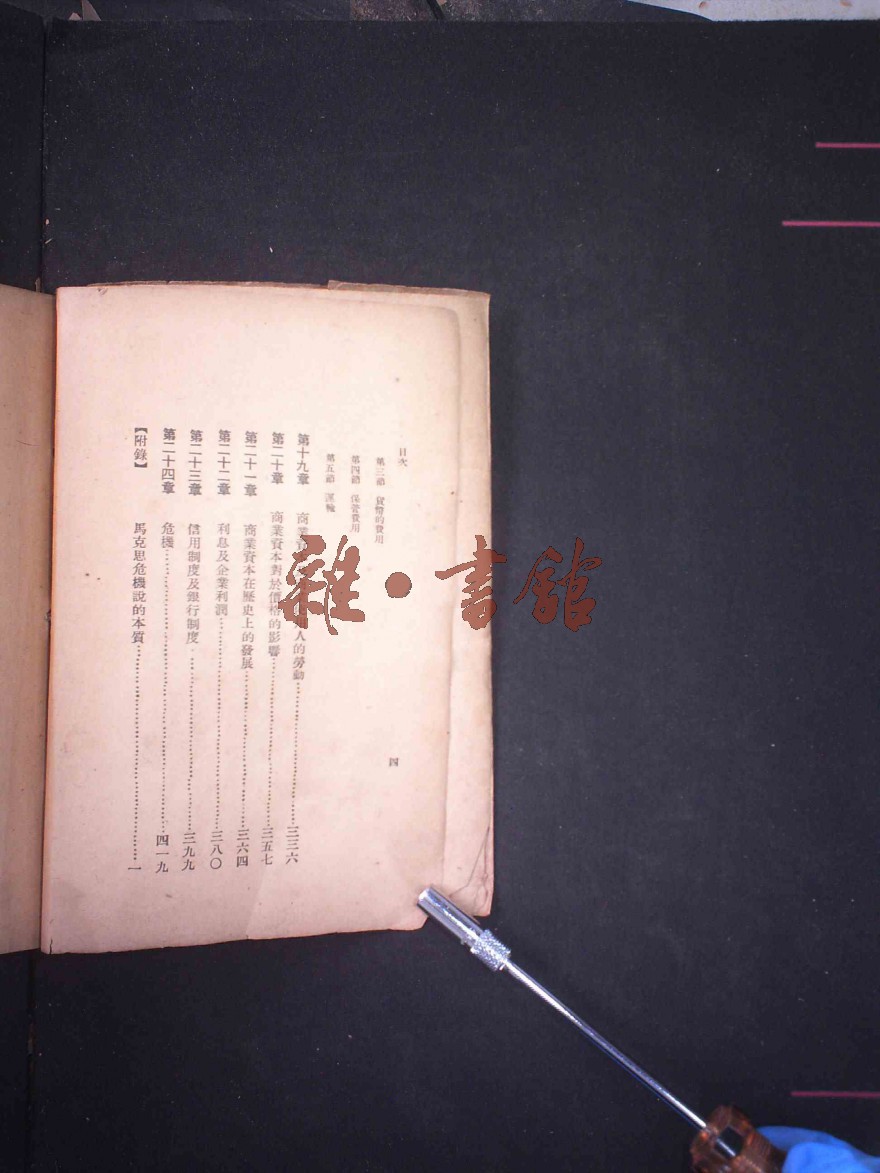 目次
第三節 貨幣的費用
第四節 保管費用
第五節 運輸
第十九章 商業資本 人的勞動 三三六
第二十章 商業資本對於價格的影響 三五七
第二十一章 商業資本在歷史上的發展 三六四
第二十二章 利息及企業利潤 三八〇
第二十三章 信用制度及銀行制度 三九九
第二十四章 危機 四一九
【附錄】 馬克思危機說的本質 一
四
雜·書館